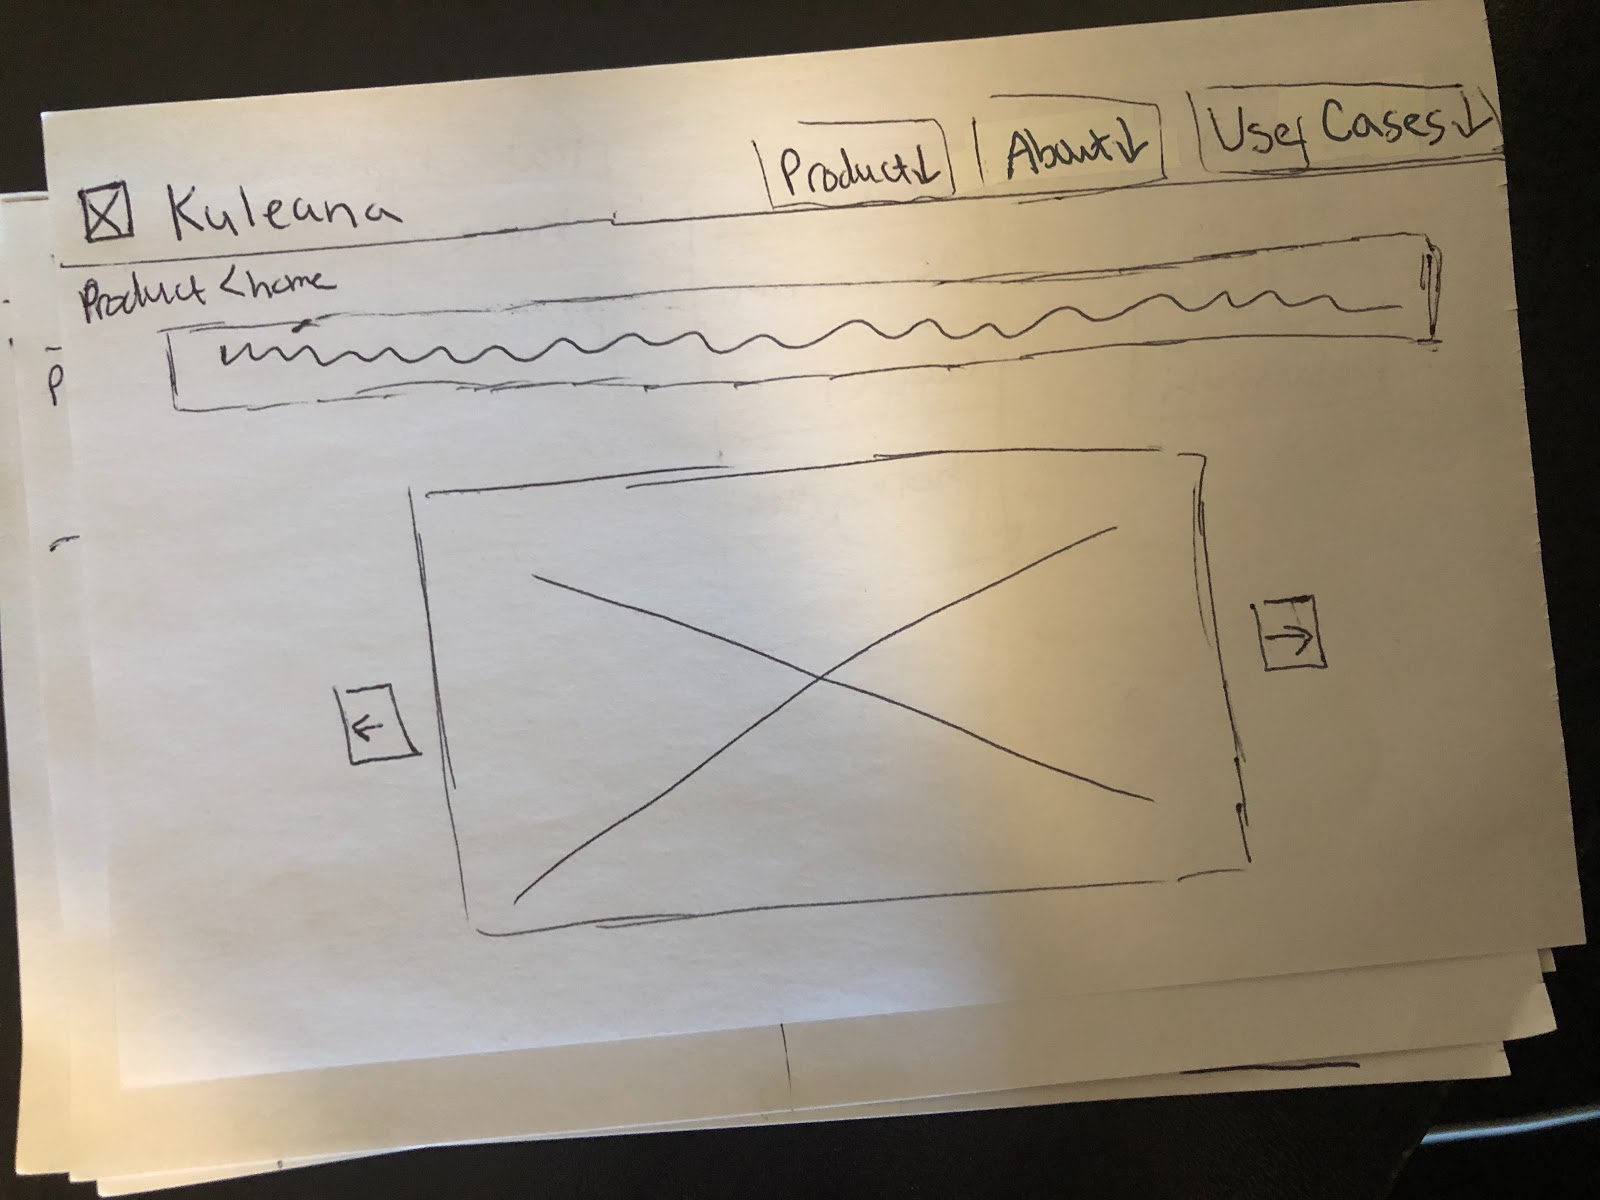 Kuleana
Product↓ About↓ User Cases↓
Product <home
P